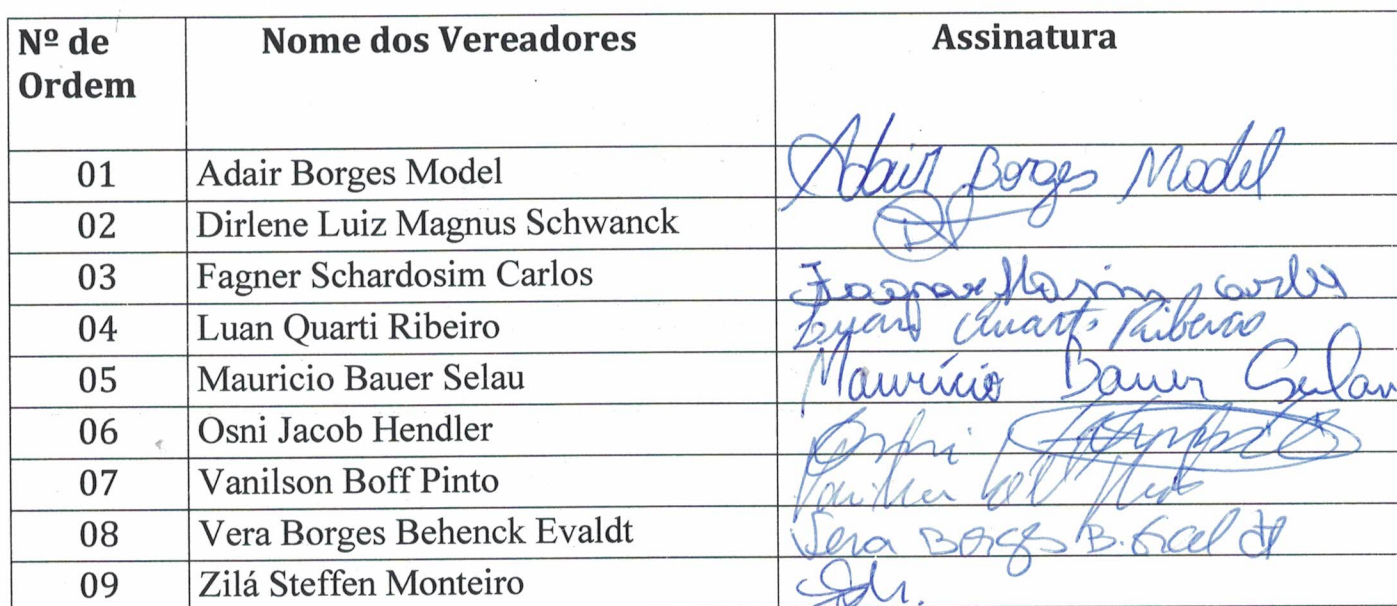 Nº de Ordem Nome dos Vereadores Assinatura
01 Adair Borges Model Adair Borges Model
02 Dirlene Luiz Magnus Schwanck
03 Fagner Schardosim Carlos Fagner Carlos
04 Luan Quarti Ribeiro Luan Quarti Ribeiro
05 Mauricio Bauer Selau Maurício Bauer Selau
06 Osni Jacob Hendler Osni
07 Vanilson Boff Pinto
08 Vera Borges Behenck Evaldt Vera Borges B. Evaldt
09 Zilá Steffen Monteiro